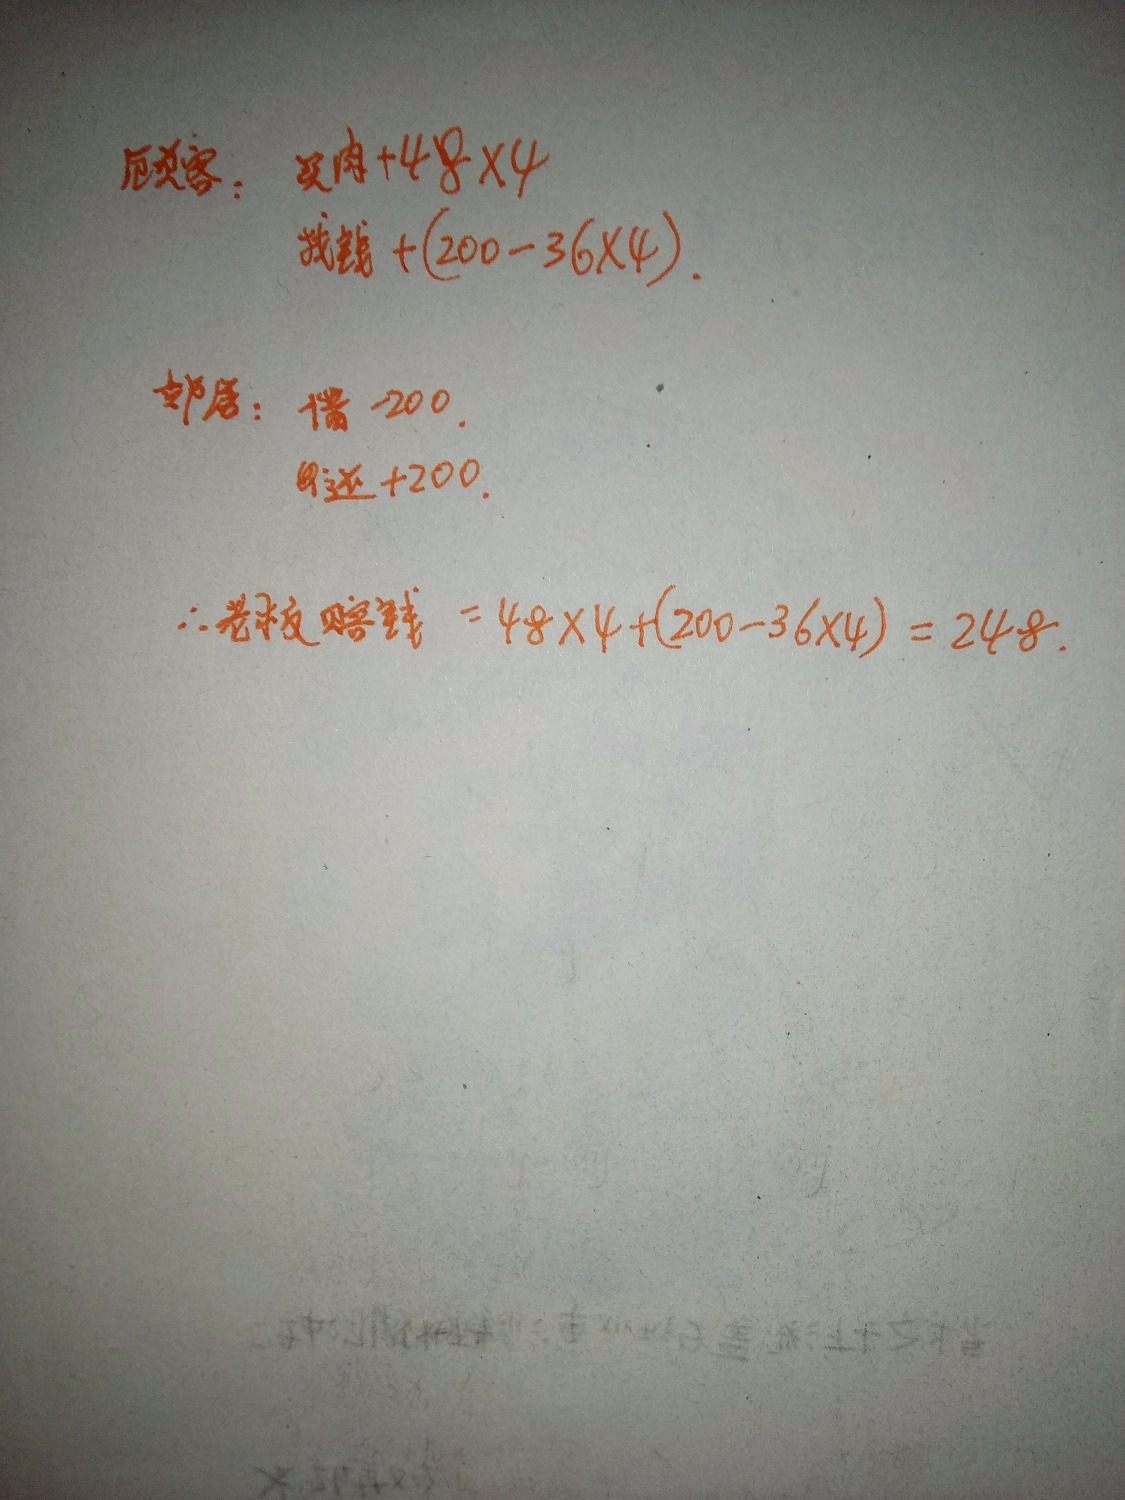 顾客: 买肉+48×4
找钱+(200-36×4).
邻居: 借-200.
还+200.
∴老板赔钱 =48×4+(200-36×4)=248.